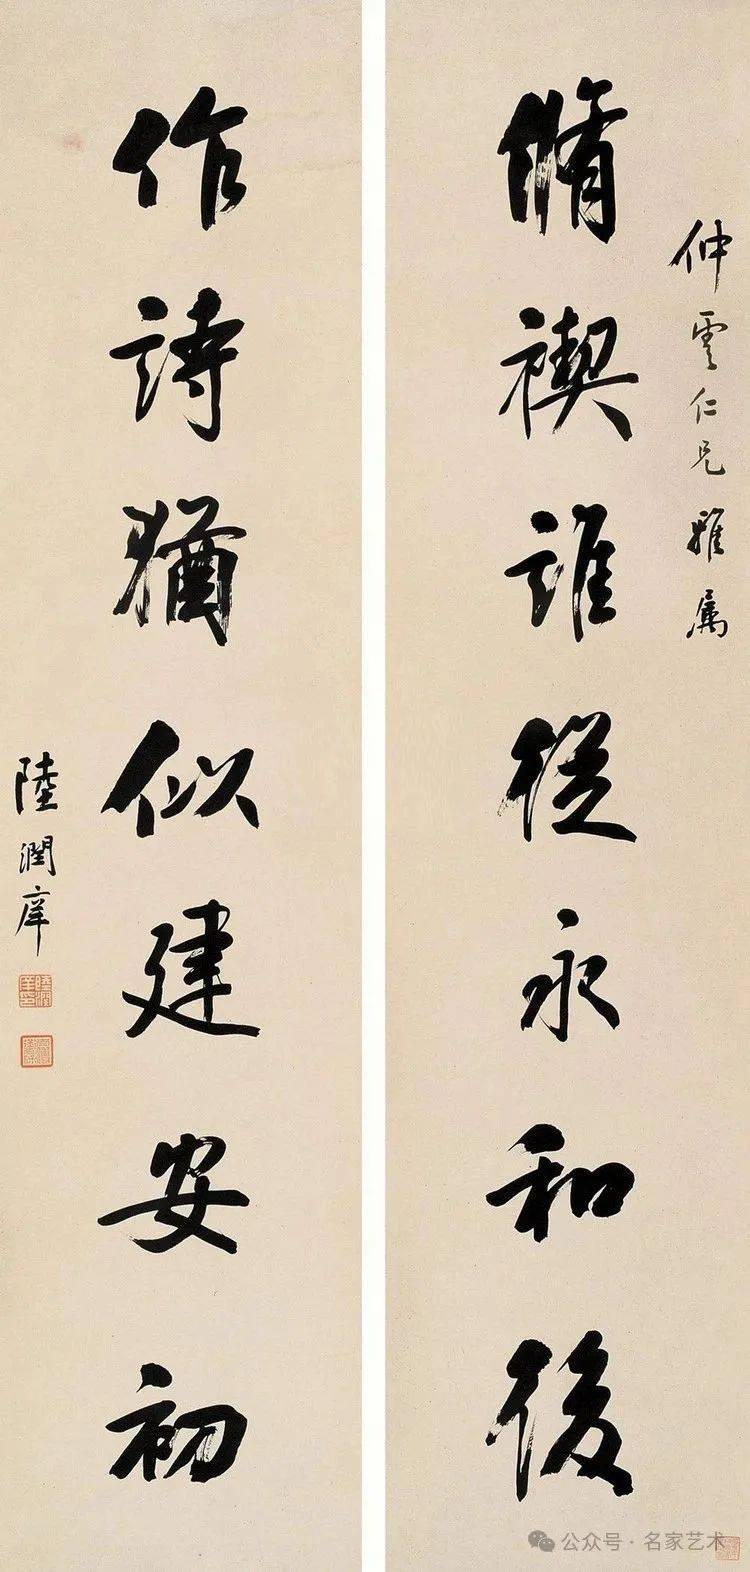 仲雲仁兄雅属
脩禊誰從永和後
作詩猶似建安初
陸潤庠
公众号·名家艺术